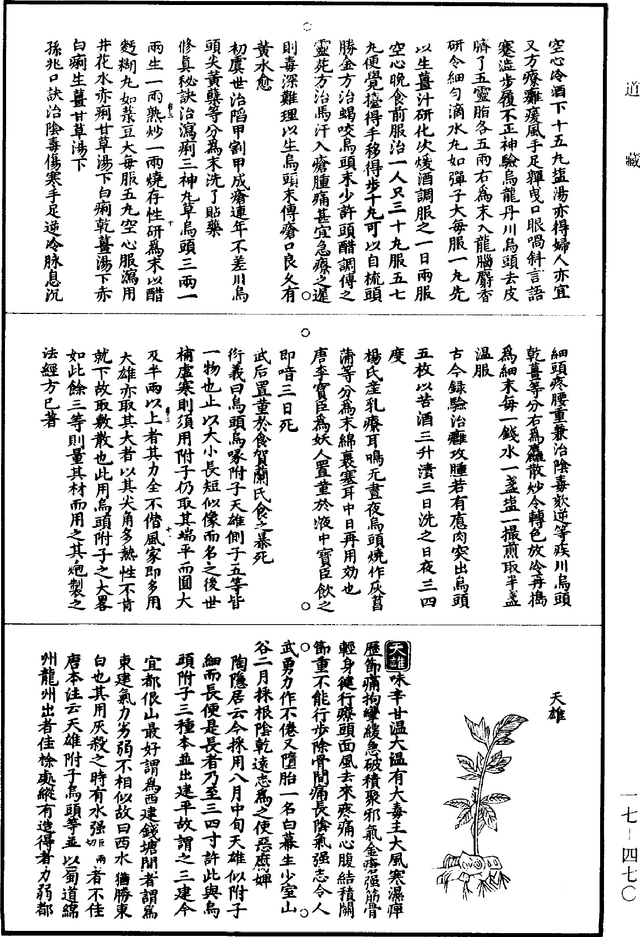 道藏
空心冷酒下十五丸盐湯亦得婦人亦宜
又方療癱瘓風手足軃曳口眼喎斜言語
蹇澁步履不正神驗烏龍丹川烏頭去皮
臍了五靈脂各五兩右為末入龍腦麝香
研令細勻滴水丸如彈子大每服一丸先
以生薑汁研化次煖酒調服之一日兩服
空心晚食前服治一人只三十九服五七
丸便覺擡得手移得步十九可以自梳頭
勝金方治蝎咬烏頭末少許頭醋調傅之
靈苑方治馬汗入瘡腫痛甚宜急療之遲
則毒深難理以生烏頭末傅瘡口良久有
黃水愈
初虞世治陷甲割甲成瘡連年不差川烏
頭尖黃蘗等分為末洗了貼藥
修真秘訣治瀉痢三神丸草烏頭三兩一
兩生一兩熟炒一兩燒存性研為末以醋
麪糊丸如菉豆大每服五丸空心服瀉用
井花水赤痢甘草湯下白痢乾薑湯下赤
白痢生薑甘草湯下
孫兆口訣治陰毒傷寒手足逆冷脉息沉
細頭疼腰重兼治陰毒欬逆等疾川烏頭
乾薑等分右為麤散炒令轉色放冷再擣
為細末每一錢水一盞盐一撮煎取半盞
溫服
古今錄驗治癰攻腫若有瘜肉突出烏頭
五枚以苦酒三升漬三日洗之日夜三四
度
楊氏產乳療耳鳴无晝夜烏頭燒作灰菖
蒲等分為末綿裹塞耳中日再用効也
唐李寶臣為妖人置堇於液中寶臣飲之
即喑三日死
武后置堇於食賀蘭氏食之暴死
衍義曰烏頭烏喙附子天雄側子五等皆
一物也止以大小長短似像而名之後世
補虛寒則須用附子仍取其端平而圓大
及半兩以上者其力全不僭風家即多用
天雄亦取其大者以其尖角多熱性不肯
就下故取敷散也此用烏頭附子之大畧
如此餘三等則量其材而用之其炮製之
法經方已著
天雄
天雄味辛甘溫大溫有大毒主大風寒濕痺
歷節痛拘攣緩急破積聚邪氣金瘡强筋骨
輕身健行療頭面風去來疼痛心腹結積關
節重不能行步除骨間痛長陰氣强志令人
武勇力作不倦又墮胎一名白幕生少室山
谷二月採根陰乾遠志為之使惡腐婢
陶隱居云今採用八月中旬天雄似附子
細而長便是長者乃至三四寸許此與烏
頭附子三種本並出建平故謂之三建今
宜都佷山最好謂為西建錢塘間者謂為
東建氣力劣弱不相似故曰西水猶勝東
白也其用灰殺之時有水强者不佳
唐本注云天雄附子烏頭等並以蜀道綿
州龍州出者佳檢處縱有造得者力弱都
一七－四七〇